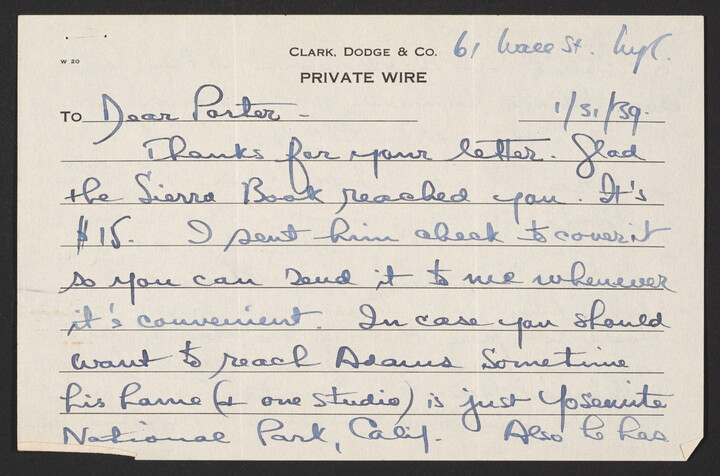 61 Wall St. NyC.
W 20
CLARK, DODGE & CO.
PRIVATE WIRE
TO Dear Porter - 1/31/39.
Thanks for your letter. Glad
the Sierra Book reached you. It's
$15. I sent him check to cover it
so you can send it to me whenever
it's convenient. In case you should
want to reach Adams sometime
his home (+ one studio) is just Yosemite
National Park, Calif. Also he has